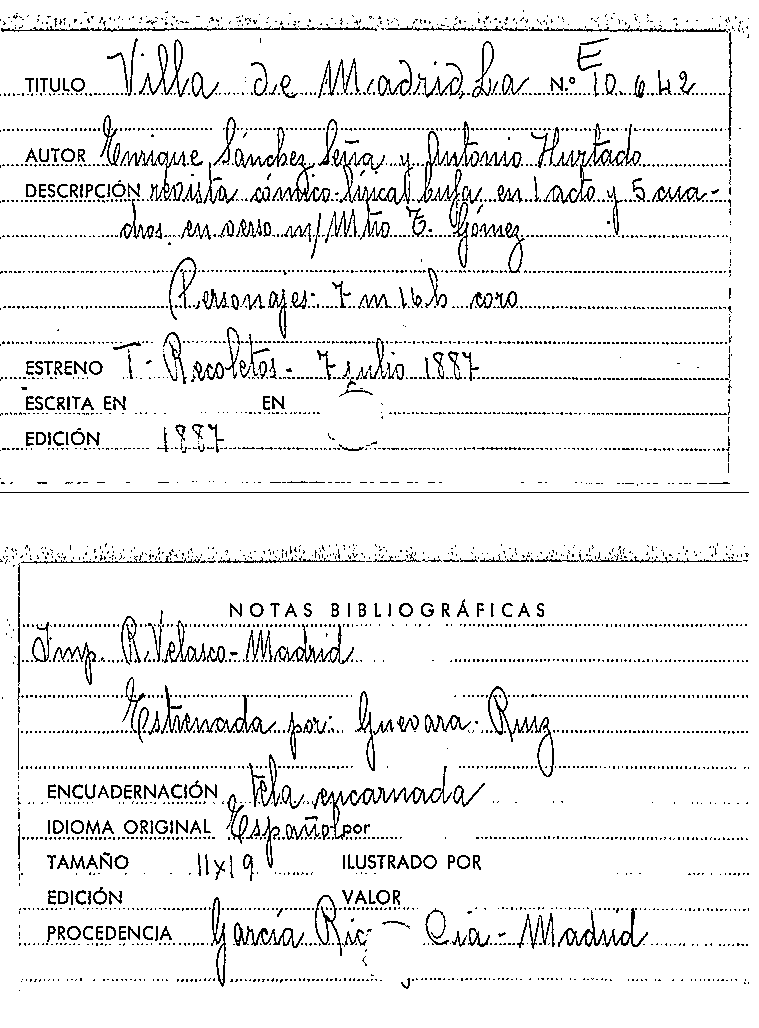 E
TITULO Villa de Madrid, La N.º 10.642
AUTOR Enrique Sánchez Seña y Antonio Hurtado
DESCRIPCIÓN revista cómico-lírica bufa en 1 acto y 5 cua-
dros en verso m/ Mtro T. Gómez
Personajes- 7 m 16 h coro
ESTRENO T- Recoletos- 7 julio 1887
ESCRITA EN EN
EDICIÓN 1887
NOTAS BIBLIOGRÁFICAS
Imp. R. Velasco- Madrid
Estrenada por: Guevara- Ruiz
ENCUADERNACIÓN tela encarnada
IDIOMA ORIGINAL Español por
TAMAÑO 11x19 ILUSTRADO POR
EDICIÓN VALOR
PROCEDENCIA García Rico Cía- Madrid